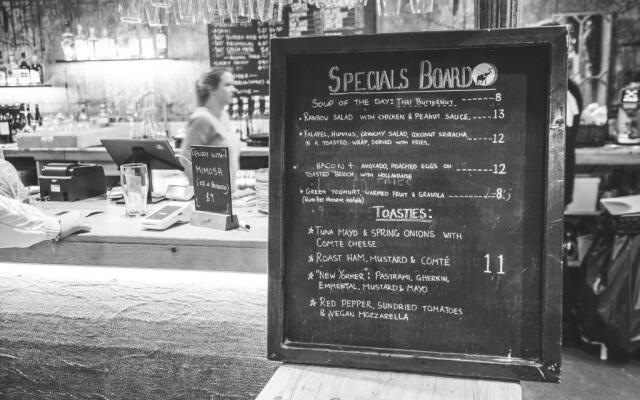 SPECIALS BOARD
SOUP OF THE DAY: THAI BUTTERNUT ------- 8
• RAINBOW SALAD WITH CHICKEN & PEANUT SAUCE ---- 13
• FALAFEL, HUMMUS, CRUNCHY SALAD, COCONUT SRIRACHA
IN A TOASTED WRAP, SERVED WITH FRIES. 12
BACON + AVOCADO, POACHED EGGS ON
TOASTED BRIOCH WITH HOLLANDAISE 12
• GREEN YOGHURT, WARMED FRUIT & GRANOLA 8
TOASTIES:
★ TUNA MAYO & SPRING ONIONS WITH
COMTÉ CHEESE
★ ROAST HAM, MUSTARD & COMTÉ 11
★ "NEW YORKER": PASTRAMI, GHERKIN,
EMMENTAL, MUSTARD & MAYO
★ RED PEPPER, SUNDRIED TOMATOES
& VEGAN MOZZARELLA
ENJOY WITH:
MIMOSA
£9